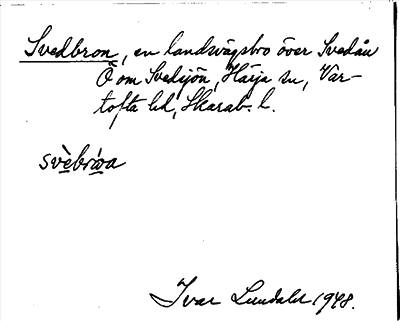 Svedbron, en landsvägsbro över Svedån
Ö om Svedsjön, Härja sn, Var-
tofta hd, Skarab. l.
svèbróa
Ivar Lundahl 1948.